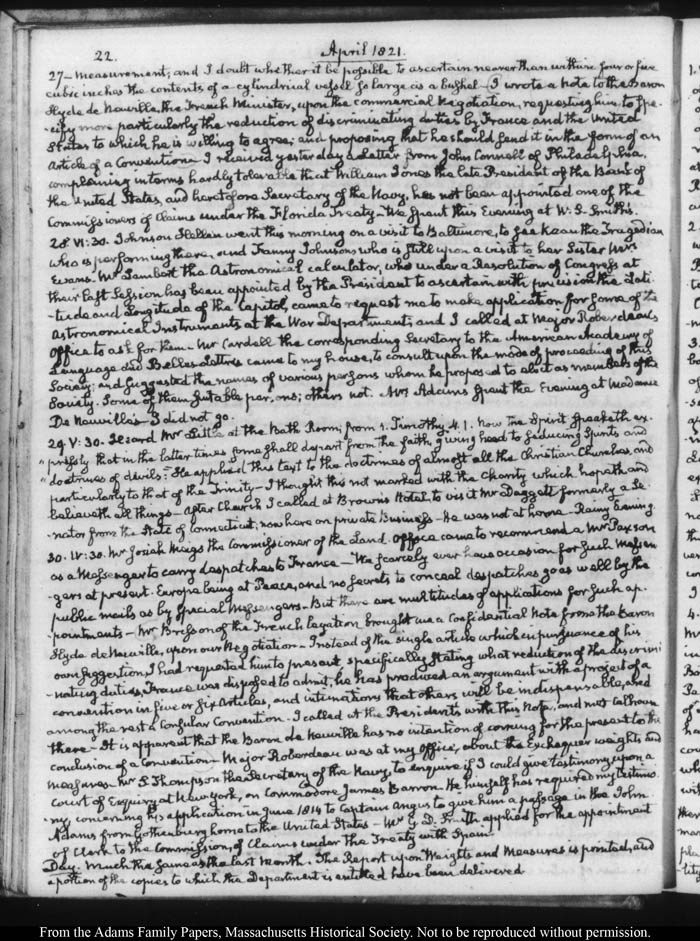 22.
April 1821.
27 - measurement; and I doubt whether it be possible to ascertain nearer than within four or five
cubic inches the contents of a cylindrical vessel so large as a bushel - I wrote a Note to the Baron
Hyde de Neuville, the French Minister, upon the commercial Negotiation, requesting him to spe-
-cify more particularly the reduction of discriminating duties by France and the United
States to which he is willing to agree; and proposing that he should send it in the form of an
Article of a Convention. I received yesterday a Letter from John Connell of Philadelphia,
complaining in terms hardly tolerable that William Jones the late President of the Bank of
the United States, and heretofore Secretary of the Navy, has not been appointed one of the
Commissioners of Claims under the Florida Treaty - We spent this Evening at W. S. Smith's.
28. VI:30. Johnson Hellen went this morning on a visit to Baltimore, to see Kean the Tragedian
who is performing there, and Fanny Johnson, who is still upon a visit to her Sister Mrs
Evans. Mr Lambert the Astronomical calculator, who under a Resolution of Congress at
their last Session has been appointed by the President to ascertain with precision the Lati-
-tude and Longitude of the Capitol, came to request me to make application for some of the
Astronomical Instruments at the War Department; and I called at Major Roberdeau's
Office to ask for them - Mr Cardell the corresponding Secretary to the American Academy of
Language and Belles Lettres came to my house, to consult upon the mode of proceeding of this
Society; and suggested the names of various persons whom he proposed to elect as members of the
Society. Some of them suitable persons; others not. Mrs Adams spent the Evening at Madame
De Neuville's - I did not go.
29. V:30. Heard Mr Little at the Bath Room; from 1. Timothy 4.1. Now the Spirit speaketh ex-
"pressly that in the latter times some shall depart from the faith, giving heed to seducing spirits and
"doctrines of devils." He applied this text to the doctrines of almost all the Christian Churches, and
particularly to that of the Trinity - I thought this not marked with the Charity which hopeth and
believeth all things - After Church I called at Brown's Hotel, to visit Mr Daggett formerly a Se-
-nator from the State of Connecticut, now here on private Business - He was not at home - Rainy Evening.
30. IV:30. Mr Josiah Meigs the Commissioner of the Land Office came to recommend a Mr Paxson
as a Messenger to carry despatches to France - We scarcely ever have occasion for such Messen-
-gers at present. Europe being at Peace, and no secrets to conceal despatches go as well by the
public mails as by special Messengers - But there are multitudes of applications for such ap-
-pointments - Mr Bresson of the French legation brought me a Confidential Note from the Baron
Hyde de Neuville, upon our Negotiation - Instead of the single article which in pursuance of his
own suggestion, I had requested him to present, specifically stating what reduction of the discrimi-
-nating duties, France was disposed to admit, he has produced an argument with a project of a
convention in five or six Articles, and intimations that others will be indispensable, and
among the rest a Consular Convention - I called at the President's with this Note, and met Calhoun
there - It is apparent that the Baron de Neuville has no intention of coming for the present to the
conclusion of a Convention - Major Roberdeau was at my Office, about the Exchequer weights and
measures - Mr S. Thompson the Secretary of the Navy, to enquire if I could give testimony upon a
Court of Enquiry at New York, on Commodore James Barron - He himself has required my testimo-
-ny, concerning his application in June 1814 to Captain Angus to give him a passage in the John
Adams from Gothenburg home to the United States - Mr D. Smith applied for the appointment
of Clerk to the Commission, of Claims under the Treaty with Spain.
Day. Much the same as the last month. The Report upon Weights and Measures is printed, and
a portion of the copies to which the Department is entitled have been delivered
From the Adams Family Papers, Massachusetts Historical Society. Not to be reproduced without permission.